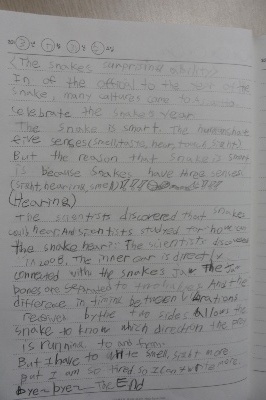 <The snakes
In of the official to the
snake, many cultures came to
celebrate the snakes year.
The snake is smart. The human have
five senses (smell, taste, hear, touch, sight)
But the reason that snake is smart
is because snakes have three senses
(sight, hearing, smell)
(Hearing)
the scientists discovered that snakes
could hear. And scientists studied for how can
the snake hear? The scientists discovered
in 2008. The inner ear is directly
connected with the snakes jaw. The jaw
bones are separated to two And the
difference in timing between vibrations
received by the two sides allows the
snake to know which direction the
is running to
But I have to write smell, sight more
but I am so tired. So I can't write more.
bye~ bye~ The End